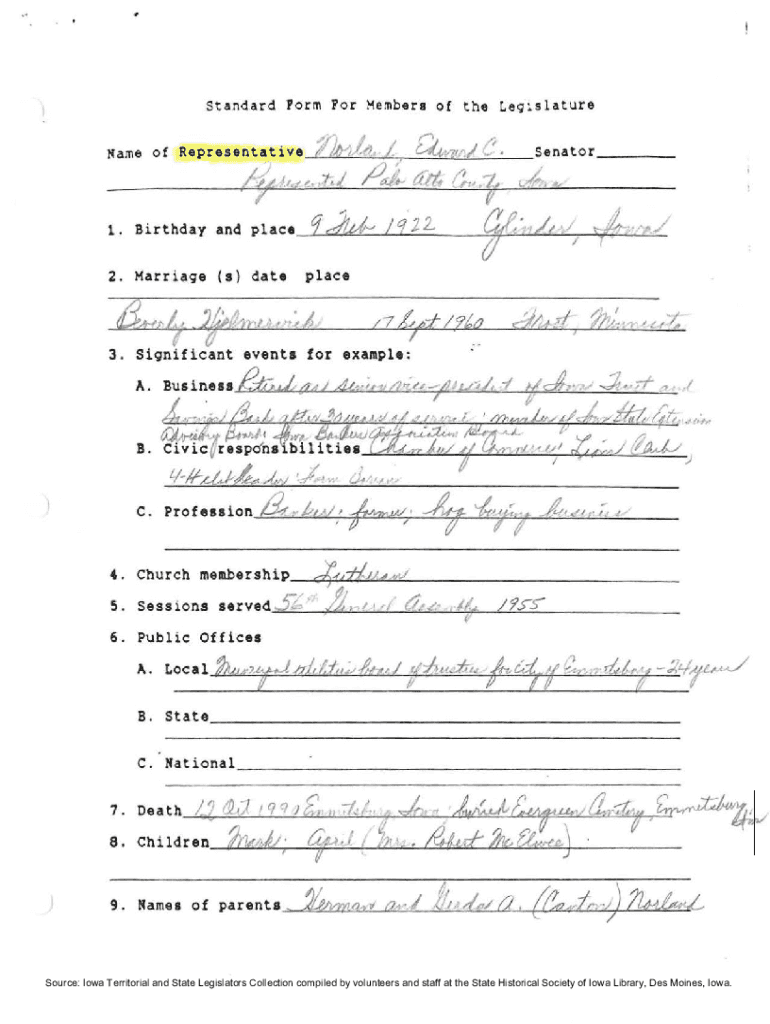 Standard Form For Members of the Legislature
Name of Representative Norland, Edward C. Senator
Represented Palo Alto County, Iowa
1. Birthday and place 9 Feb 1922 Cylinder, Iowa
2. Marriage (s) date place
Beverly 17 Sept 1960 Frost, Minnesota
3. Significant events for example:
A. Business Retired as senior vice-president of Iowa Trust and
Savings Bank after 30 years of service; member of Iowa State Extension
Advisory Board; Iowa Bankers Association Board
B. Civic responsibilities Chamber of Commerce; Lions Club,
4-H club leader; Farm
C. Profession Banker; farmer; hog buying business
4. Church membership Lutheran
5. Sessions served 56th General Assembly 1955
6. Public Offices
A. Local Municipal utilities board of trustees for city of Emmetsburg - 24 years
B. State
C. National
7. Death 12 Oct 1990 Emmetsburg, Iowa; buried Evergreen Cemetery, Emmetsburg, Iowa
8. Children Mark; April (Mrs. Robert McElwee)
9. Names of parents Herman and A. (Canton) Norland
Source: Iowa Territorial and State Legislators Collection compiled by volunteers and staff at the State Historical Society of Iowa Library, Des Moines, Iowa.